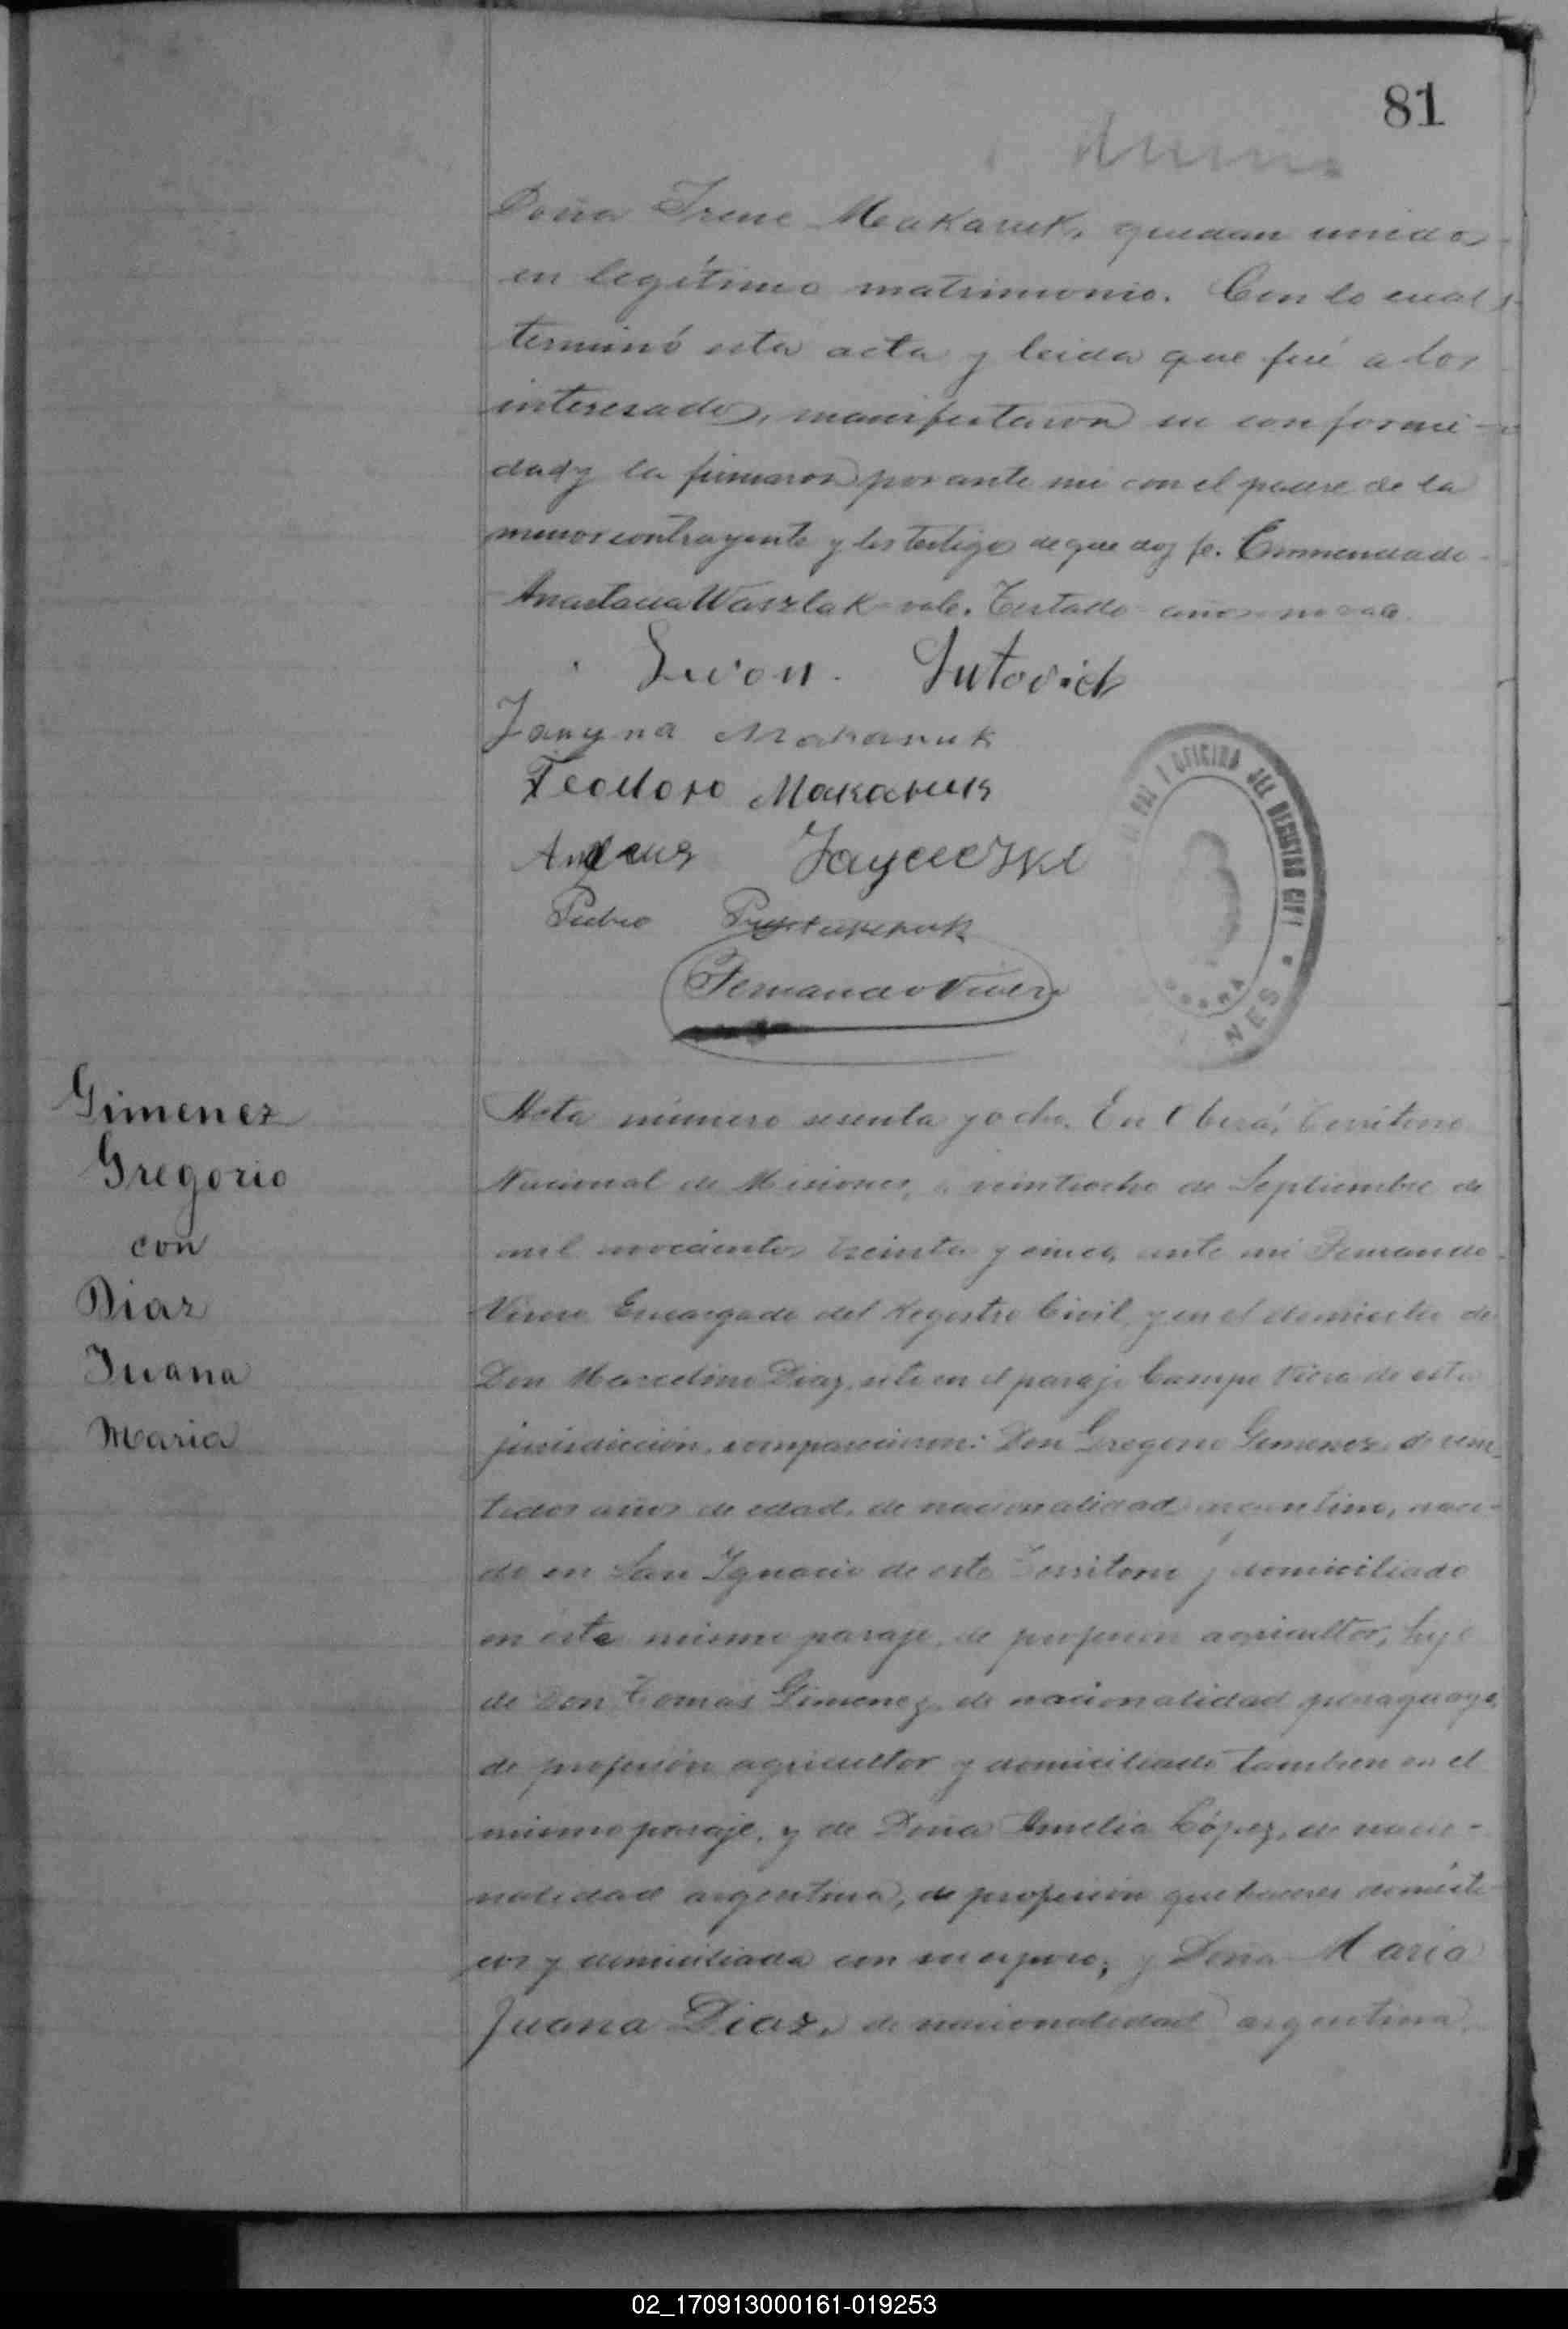 81
Doña Irene Makaruk, quedan unidos
en legítimo matrimonio. Con lo cual s
terminó esta acta y leida que fué a los
interesados, manifestaron su conformi-
dad y la firmaron por ante mi con el padre de la
menor contrayente y los testigos de que doy fe. Enmendado
Anastacia Waszlak vale. Testado años no vale.
Iwon Sutovich
Janyna Makaruk
Teodoro Makaruk
Andrus
Pedro
Fernando Vivero
OFICINA DEL REGISTRO CIVI
OBERA
NES
Gimenez
Gregorio
con
Diaz
Juana
Maria
Acta número sesenta y ocho. En Oberá, Territorio
Nacional de Misiones, a veintiocho de Septiembre de
mil novecientos treinta y cinco, ante mi Fernando
Vivero Encargado del Registro Civil, y en el domicilio de
Don Marcelino Diaz, sito en el paraje Campo Viera de esta
jurisdicción, comparecieron: Don Gregorio Gimenez, de vein-
tidos años de edad, de nacionalidad argentino, naci-
do en San Ignacio de este Territorio y domiciliado
en este mismo paraje, de profesion agricultor, hijo
de Don Tomás Gimenez, de nacionalidad paraguayo,
de profesión agricultor y domiciliado tambien en el
mismo paraje, y de Doña Amelia López, de nacio-
nalidad argentina, de profesión quehaceres domésti-
cos y domiciliada con su esposo; y Doña Maria
Juana Diaz, de nacionalidad argentina
02_170913000161-019253